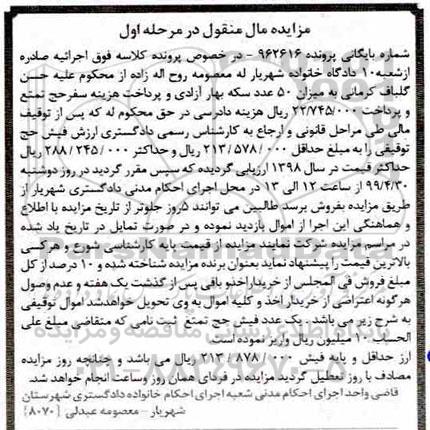 مزایده مال منقول در مرحله اول
شماره بایگانی پرونده ۹۶۲۶۱۶ - در خصوص پرونده کلاسه فوق اجرائیه صادره
ازشعبه۱۰ دادگاه خانواده شهریار له معصومه روح اله زاده از محکوم علیه حسن
گلباف کرمانی به میزان ۵۰ عدد سکه بهار آزادی و پرداخت هزینه سفرحج تمتع
و پرداخت ۲۲/۷۴۵/۰۰۰ ریال هزینه دادرسی در حق محکوم له که پس از توقیف
مالی طی مراحل قانونی و ارجاع به کارشناس رسمی دادگستری ارزش فیش حج
توقیفی را به مبلغ حداقل ۲۱۳/۵۷۸/۰۰۰ ریال و حداکثر ۲۸۸/۲۴۵/۰۰۰ ریال
حداکثر قیمت در سال ۱۳۹۸ ارزیابی گردیده که سپس مقرر گردید در روز دوشنبه
۹۹/۴/۳۰ از ساعت ۱۲ الی ۱۳ در محل اجرای احکام مدنی دادگستری شهریار از
طریق مزایده بفروش برسد طالبین می توانند ۵روز جلوتر از تاریخ مزایده با اطلاع
و هماهنگی این اجرا از اموال بازدید نموده و در صورت تمایل در تاریخ یاد شده
در مراسم مزایده شرکت نمایند مزایده از قیمت پایه کارشناسی شروع و هرکسی
بالاترین قیمت را پیشنهاد نماید بعنوان برنده مزایده شناخته شده و ۱۰ درصد از کل
مبلغ فروش فی المجلس از خریدار اخذ و باقی پس از گذشت یک هفته و عدم وصول
هرگونه اعتراضی از خریدار اخذ و کلیه اموال به وی تحویل خواهدشد اموال توقیفی
به شرح زیر می باشد . یک عدد فیش حج تمتع ثبت نامی که متقاضی مبلغ علی
الحساب ۱۰ میلیون ریال واریز نموده است
ارز حداقل و پایه فیش ۲۱۳/۸۷۸/۰۰۰ ریال می باشد و چنانچه روز مزایده
مصادف با روز تعطیل گردید مزایده در فردای همان روز وساعت انجام خواهد شد.
قاضی واحد اجرای احکام مدنی شعبه اجرای احکام خانواده دادگستری شهرستان
شهریار - معصومه عبدلی {۸۰۷۰}